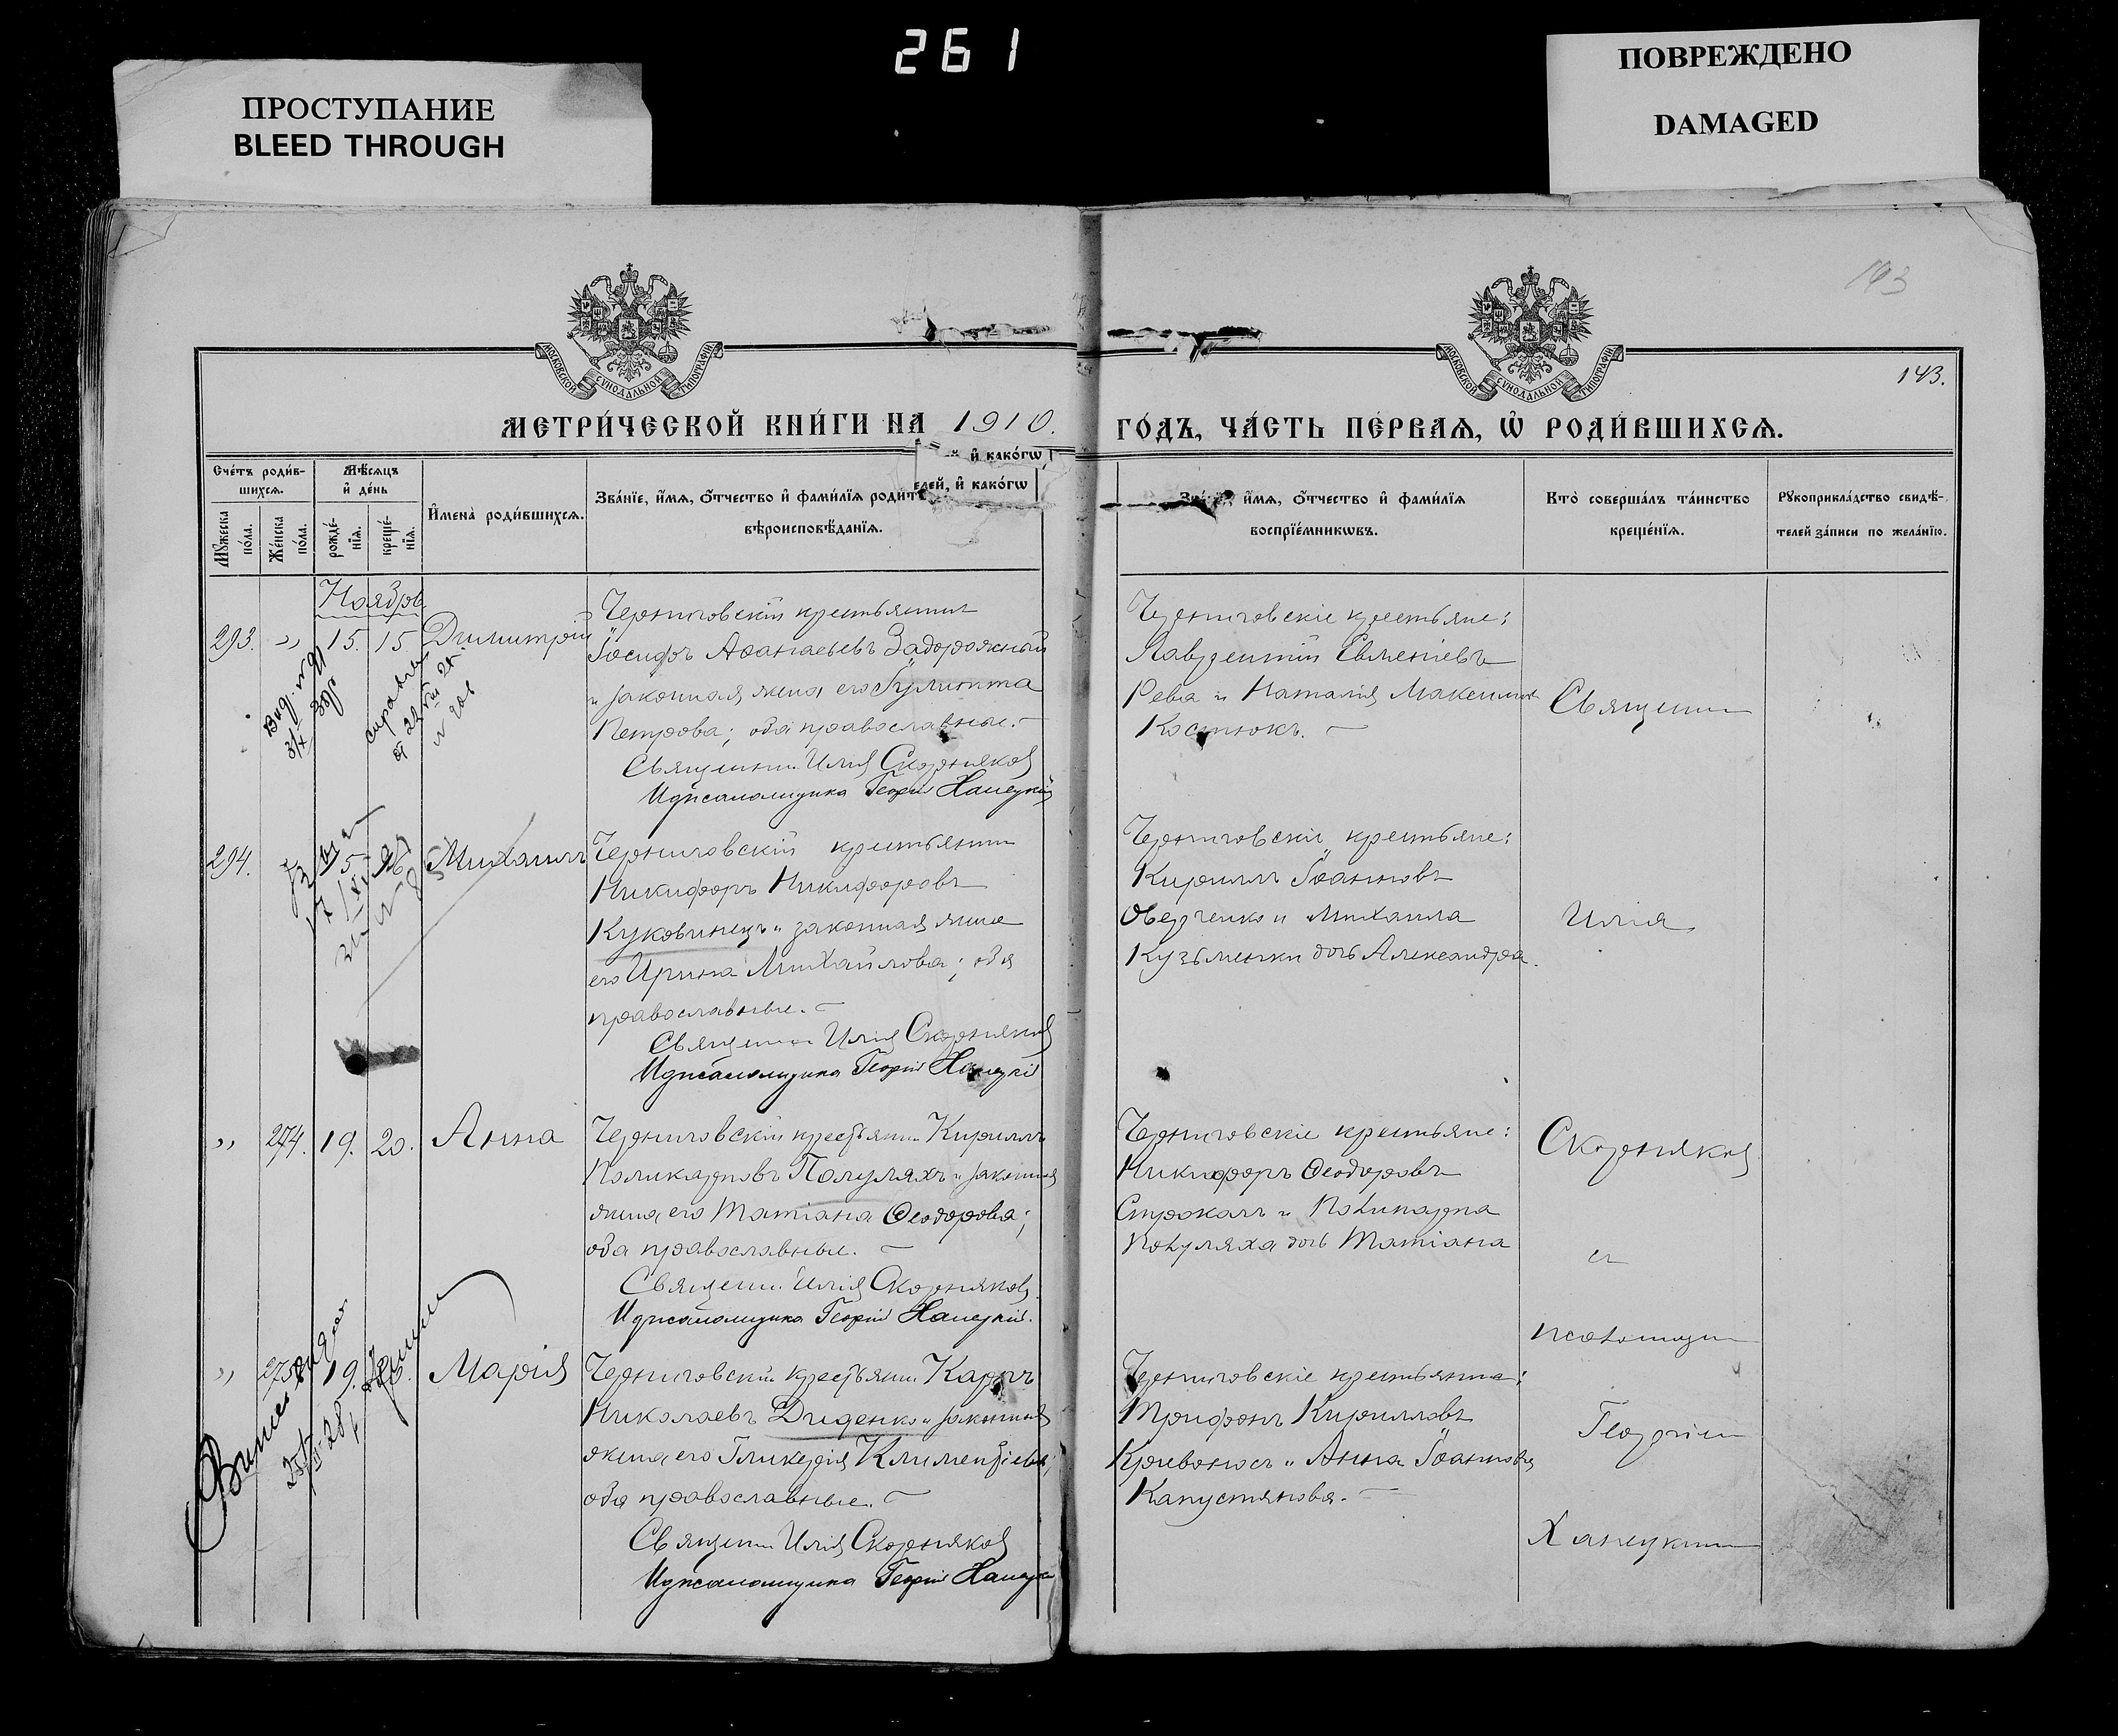 261
ПРОСТУПАНИЕ
BLEED THROUGH
ПОВРЕЖДЕНО
DAMAGED
143
143.
МОСКОВСКОЙ СѴНОДАЛЬНОЙ ТИПОГРАФІИ
МОСКОВСКОЙ СѴНОДАЛЬНОЙ ТИПОГРАФІИ
МЕТРИ́ЧЕСКОЙ КНИ́ГИ НА 1910. ГО́ДЪ, ЧА́СТЬ ПЕ́РВАЯ, Ѡ҆ РОДИ́ВШИХСЯ.
Сче́тъ роди́в-
шихся.
Мѣ́сяцъ
и҆ де́нь
Мꙋ́жеска по́ла.
Же́нска по́ла.
рожде́-
нїя.
креще́-
нїя.
И҆мена̀ роди́вшихся.
и҆ како́гѡ
Зва́нїе, и҆́мя, ѻ҆́тчество и҆ фами́лїя роди́телей, и҆ како́гѡ
вѣроисповѣ́данїя.
и҆́мя, ѻ҆́тчество и҆ фами́лїя
воспрїе́мникѡвъ.
Кто̀ соверша́лъ та́инство
креще́нїя.
Рꙋкоприкла́дство свидѣ́-
телей за́писи по жела́нїю.
Ноябрь
293. " 15. 15 Димитрій
Черниговскій крестьянинъ
Іосифъ Аѳанасьевъ Задорожный
и законная жена его Гулитта
Петрова; оба православные.
Священникъ Илія Скорняковъ
И д псаломщика Георгій Ханецкій
Черниговскіе крестьяне:
Лаврентій Евменіевъ
Рева и Наталія Максимова
Костюкъ.
Священник
294. 15. 16 Михаилъ
Черниговскій крестьянинъ
Никифоръ Никифоровъ
Куковинецъ и законная жена
его Ирина Михайлова; оба
православные.
Священникъ Илія Скорняковъ
И д псаломщика Георгій Ханецкій
Черниговскіе крестьяне:
Кириллъ Іоанновъ
Оверченко и Михаила
Кузьменки дочь Александра.
Илія
" 274. 19. 20. Анна
Черниговскій крестьянинъ Кириллъ
Поликарповъ Полуляхъ и законная
жена его Татіана Ѳеодорова;
оба православные.
Священникъ Илія Скорняковъ.
И д псаломщика Георгій Ханецкій.
Черниговскіе крестьяне:
Никифоръ Ѳеодоровъ
Строкачъ и Поликарпа
Полуляха дочь Татіана
Скорняковъ
съ
псаломщик
" 275 19. Марія
Черниговскій крестьянинъ Карпъ
Николаевъ Диденко и законная
жена его Гликерія Климентіева;
оба православные.
Священникъ Илія Скорняковъ
И д псаломщика Георгій Ханецкій
Черниговскіе крестьяне:
Трифонъ Кирилловъ
Кривоносъ и Анна Іоаннова
Капустянова.
Георгіем
Ханецким